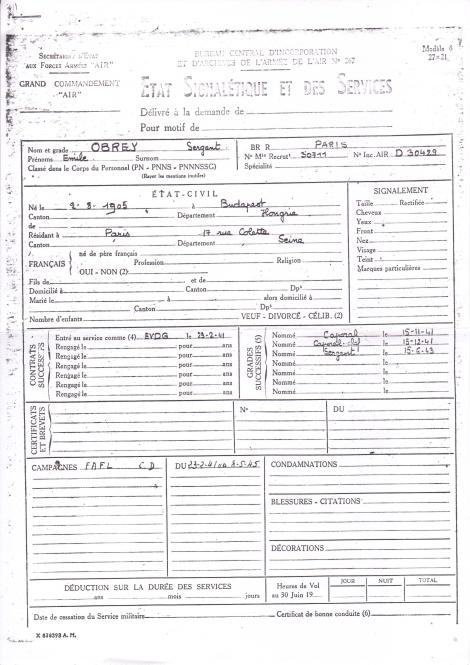 SECRÉTARIAT D'ÉTAT
AUX FORCES ARMÉES "AIR"
GRAND COMMANDEMENT
"AIR"
BUREAU CENTRAL D'INCORPORATION
ET D'ARCHIVES DE L'ARMÉE DE L'AIR N° 267
Modèle 6
27×21
ETAT SIGNALÉTIQUE ET DES SERVICES
Délivré à la demande de
Pour motif de
Nom et grade OBREY Sergent
Prénoms Emile Surnom
Classé dans le Corps du Personnel (PN - PNNS - PNNNSSG)
(Rayer les mentions inutiles)
BR R PARIS
N° Mle Recrut' 50711 N° Inc. AIR D 30429
Spécialité
ÉTAT-CIVIL
Né le 2-8-1905 à Budapest
Canton Département Hongrie
de
Résidant à Paris 17 rue Colette
Canton Département Seine
FRANÇAIS
né de père français Profession Religion
OUI - NON (2)
Fils de et de
Domicilié à Canton Dpt
Marié le à alors domicilié à
Canton Dpt
Nombre d'enfants VEUF - DIVORCÉ - CÉLIB. (2)
SIGNALEMENT
Taille Rectifiée
Cheveux
Yeux
Front
Nez
Visage
Teint
Marques particulières
CONTRATS
SUCCESS.
Entré au service comme (4) EVDG le 23-2-41
Rengagé le pour ans
Rengagé le pour ans
Rengagé le pour ans
Rengagé le pour ans
Rengagé le pour ans
GRADES
SUCCESSIFS (5)
Nommé Caporal le 15-11-41
Nommé Caporal-chef le 15-12-41
Nommé Sergent le 15-6-43
Nommé le
Nommé le
Nommé le
CERTIFICATS
ET BREVETS
N° DU
CAMPAGNES FAFL CD
DU 23-2-41 au 8-5-45
CONDAMNATIONS
BLESSURES - CITATIONS
DÉCORATIONS
DÉDUCTION SUR LA DURÉE DES SERVICES
ans mois jours
Heures de Vol
au 30 Juin 19
JOUR NUIT TOTAL
Date de cessation du Service militaire Certificat de bonne conduite (6)
X 836393 A. M.